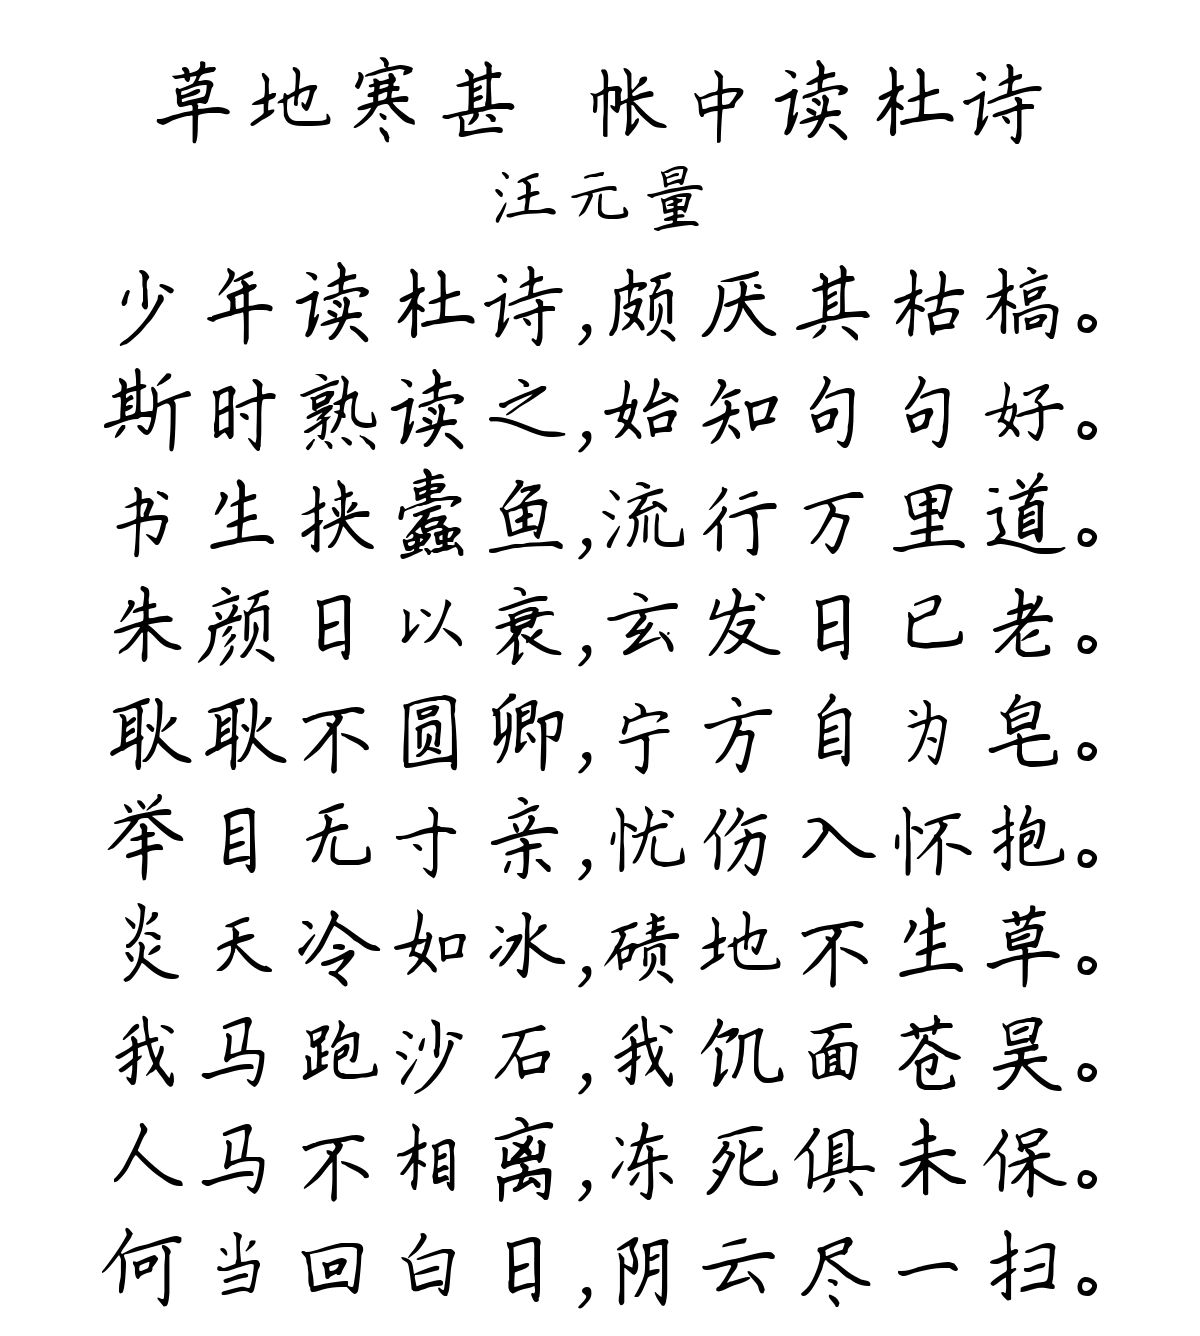 草地寒甚 帐中读杜诗
汪元量
少年读杜诗,颇厌其枯槁。
斯时熟读之,始知句句好。
书生挟蠹鱼,流行万里道。
朱颜日以衰,玄发日已老。
耿耿不圆卿,宁方自为皂。
举目无寸亲,忧伤入怀抱。
炎天冷如冰,碛地不生草。
我马跑沙石,我饥面苍昊。
人马不相离,冻死俱未保。
何当回白日,阴云尽一扫。